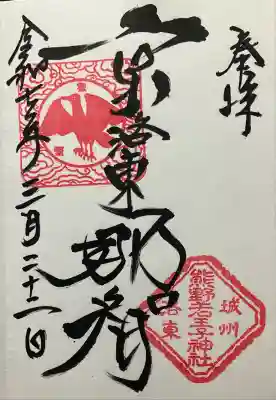 奉拝
京洛東那智
令和六年三月二十二日
城州
熊野若王子神社
洛東